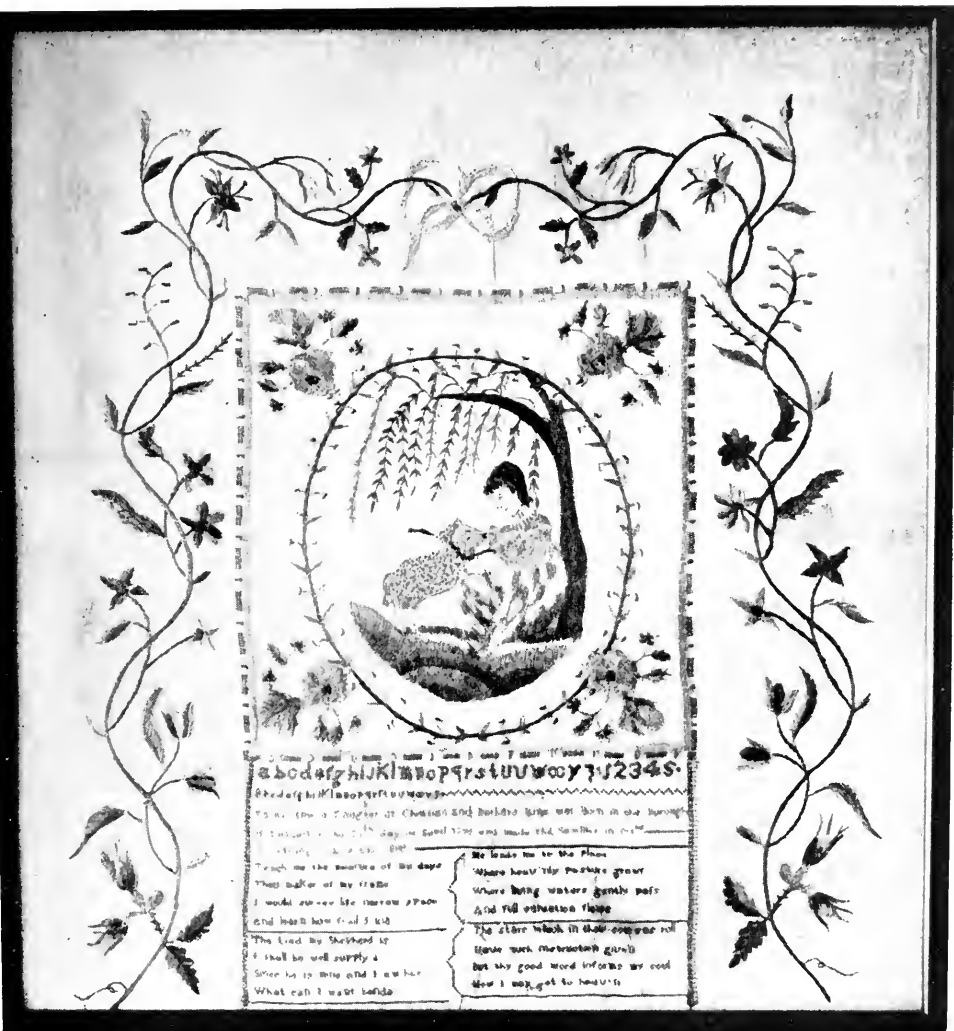 abcdefghijklmnopqrstuvwxyz 12345.
abcdefghijklmnopqrstuvwxyz
a Daughter of Christian and Barbara was Born in the Borough
of day of and made this Sampler in
Teach me the measure of my days
Thou maker of my frame
I would survey life narrow space
And learn how frail I am
The Lord my Shepherd is
I shall be well supply d
Since he is mine and I am his
What can I want beside
He leads me to the Place
Where heav'nly pasture grows
Where living waters gently pass
And full salvation flows
The stars which in their courses roll
Have much instruction given
But thy good word informs my soul
How I may get to heaven